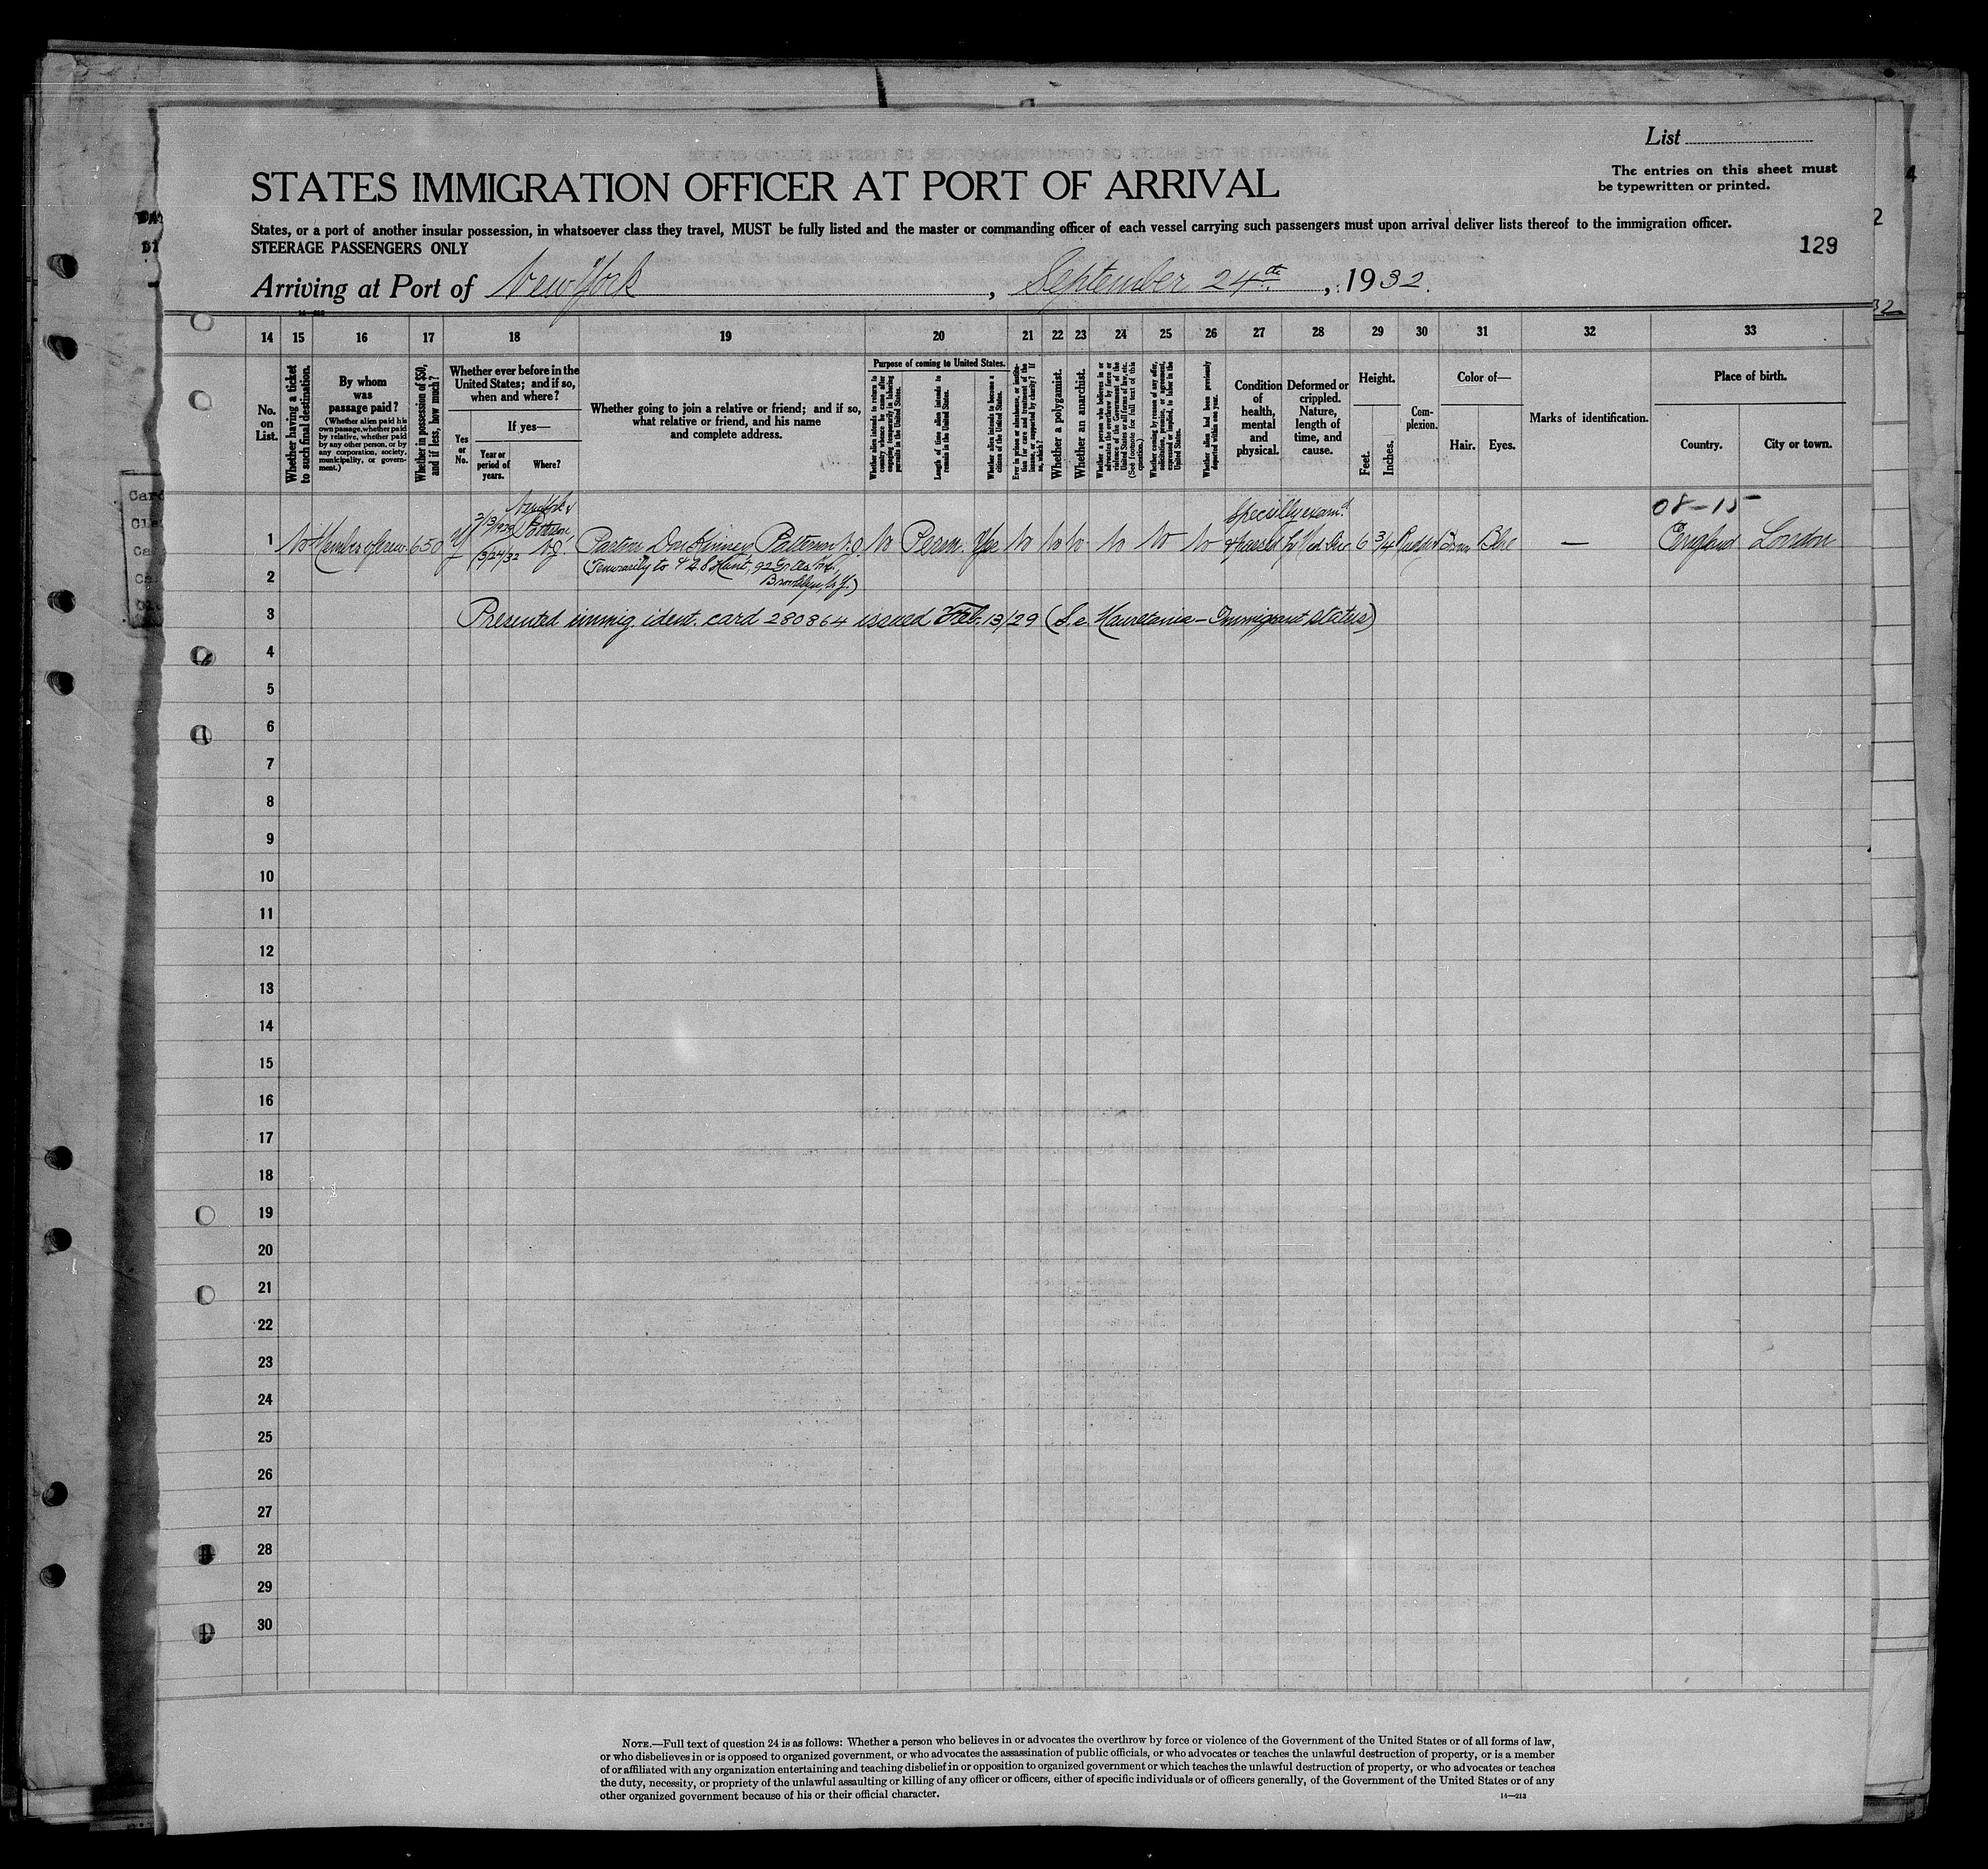 List
The entries on this sheet must
be typewritten or printed.
STATES IMMIGRATION OFFICER AT PORT OF ARRIVAL
States, or a port of another insular possession, in whatsoever class they travel, MUST be fully listed and the master or commanding officer of each vessel carrying such passengers must upon arrival deliver lists thereof to the immigration officer.
STEERAGE PASSENGERS ONLY
129
Arriving at Port of New York, September 24th, 1932.
14 15 16 17 18 19 20 21 22 23 24 25 26 27 28 29 30 31 32 33
No. on List.
Whether having a ticket to such final destination.
By whom was passage paid?
(Whether alien paid his own passage, whether paid by relative, whether paid by any other person, or by any corporation, society, municipality, or government.)
Whether in possession of $50, and if less, how much?
Whether ever before in the United States; and if so, when and where?
Yes or No.
If yes—
Year or period of years.
Where?
Whether going to join a relative or friend; and if so, what relative or friend, and his name and complete address.
Purpose of coming to United States.
Whether alien intends to return to country whence he came after engaging temporarily in laboring pursuits in the United States.
Length of time alien intends to remain in the United States.
Whether alien intends to become a citizen of the United States.
Ever in prison or almshouse, or institution for care and treatment of the insane, or supported by charity? If so, which?
Whether a polygamist.
Whether an anarchist.
Whether a person who believes in or advocates the overthrow by force or violence of the Government of the United States or all forms of law, etc. (See footnote for full text of this question.)
Whether coming by reason of any offer, solicitation, promise, or agreement, expressed or implied, to labor in the United States.
Whether alien had been previously deported within one year.
Condition of health, mental and physical.
Deformed or crippled. Nature, length of time, and cause.
Height.
Feet.
Inches.
Complexion.
Color of—
Hair.
Eyes.
Marks of identification.
Place of birth.
Country.
City or town.
08-15
1 No Member of crew 650 Y 2/13/1929 3/24/32 New York & N.J. Partner No Perm. Yes No No No No No No Specially exam'd 6 3/4 Blue — England London
(Temporarily to Hunt, 92 Brooklyn, N.Y.)
2
3 Presented immig. ident. card 280864 issued Feb. 13/29 (S.s. Mauretania - Immigrant status)
4
5
6
7
8
9
10
11
12
13
14
15
16
17
18
19
20
21
22
23
24
25
26
27
28
29
30
NOTE.—Full text of question 24 is as follows: Whether a person who believes in or advocates the overthrow by force or violence of the Government of the United States or of all forms of law,
or who disbelieves in or is opposed to organized government, or who advocates the assassination of public officials, or who advocates or teaches the unlawful destruction of property, or is a member
of or affiliated with any organization entertaining and teaching disbelief in or opposition to organized government or which teaches the unlawful destruction of property, or who advocates or teaches
the duty, necessity, or propriety of the unlawful assaulting or killing of any officer or officers, either of specific individuals or of officers generally, of the Government of the United States or of any
other organized government because of his or their official character.
14—213